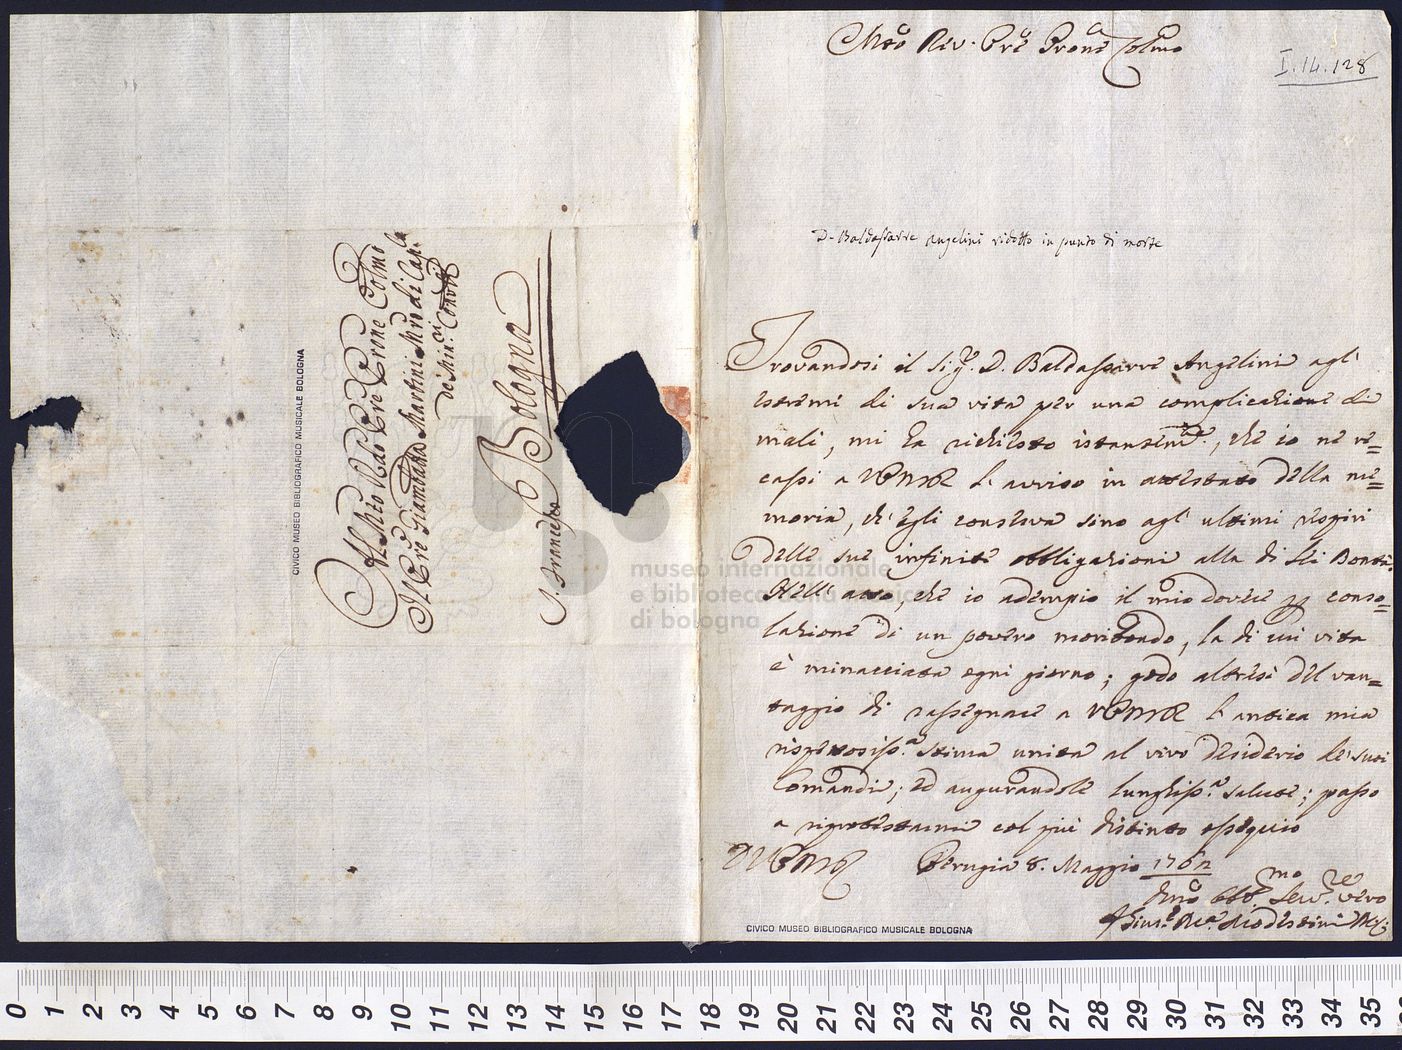 Mto Rev. Pre Prone Colmo
I.14.128
D. Baldassarre Angelini ridotto in punto di morte
Trovandosi il Sigr. D. Baldassarre Angelini agl'
estremi di sua vita per una complicazione di
mali, mi ha richiesto istantemte, che io ne re=
cassi a l'avviso in attestato della me=
moria, ch'egli conserva sino agl'ultimi respiri
delle sue infinite obbligazioni alla di Lei Bontà.
Nell'atto, che io adempio il mio dovere conso=
lazione di un povero moribondo, la di cui vita
è minacciata ogni giorno; godo altresì del van=
taggio di rassegnare a l'antica mia
rispettosissa. stima unita al vivo desiderio de' suoi
Comandi; ed augurandole lunghissa. salute; passo
a riprotestarmi col più distinto ossequio
Perugia 8. Maggio 1762
mo re vero
Al Mto Rdo Pre Prone Colmo
Il Pre Giambatta Martini Mro di Capla
de' Min: ci Convli
S. Francesco Bologna
CIVICO MUSEO BIBLIOGRAFICO MUSICALE BOLOGNA
CIVICO MUSEO BIBLIOGRAFICO MUSICALE BOLOGNA
museo internazionale
e biblioteca della musica
di bologna
0 1 2 3 4 5 6 7 8 9 10 11 12 13 14 15 16 17 18 19 20 21 22 23 24 25 26 27 28 29 30 31 32 33 34 35